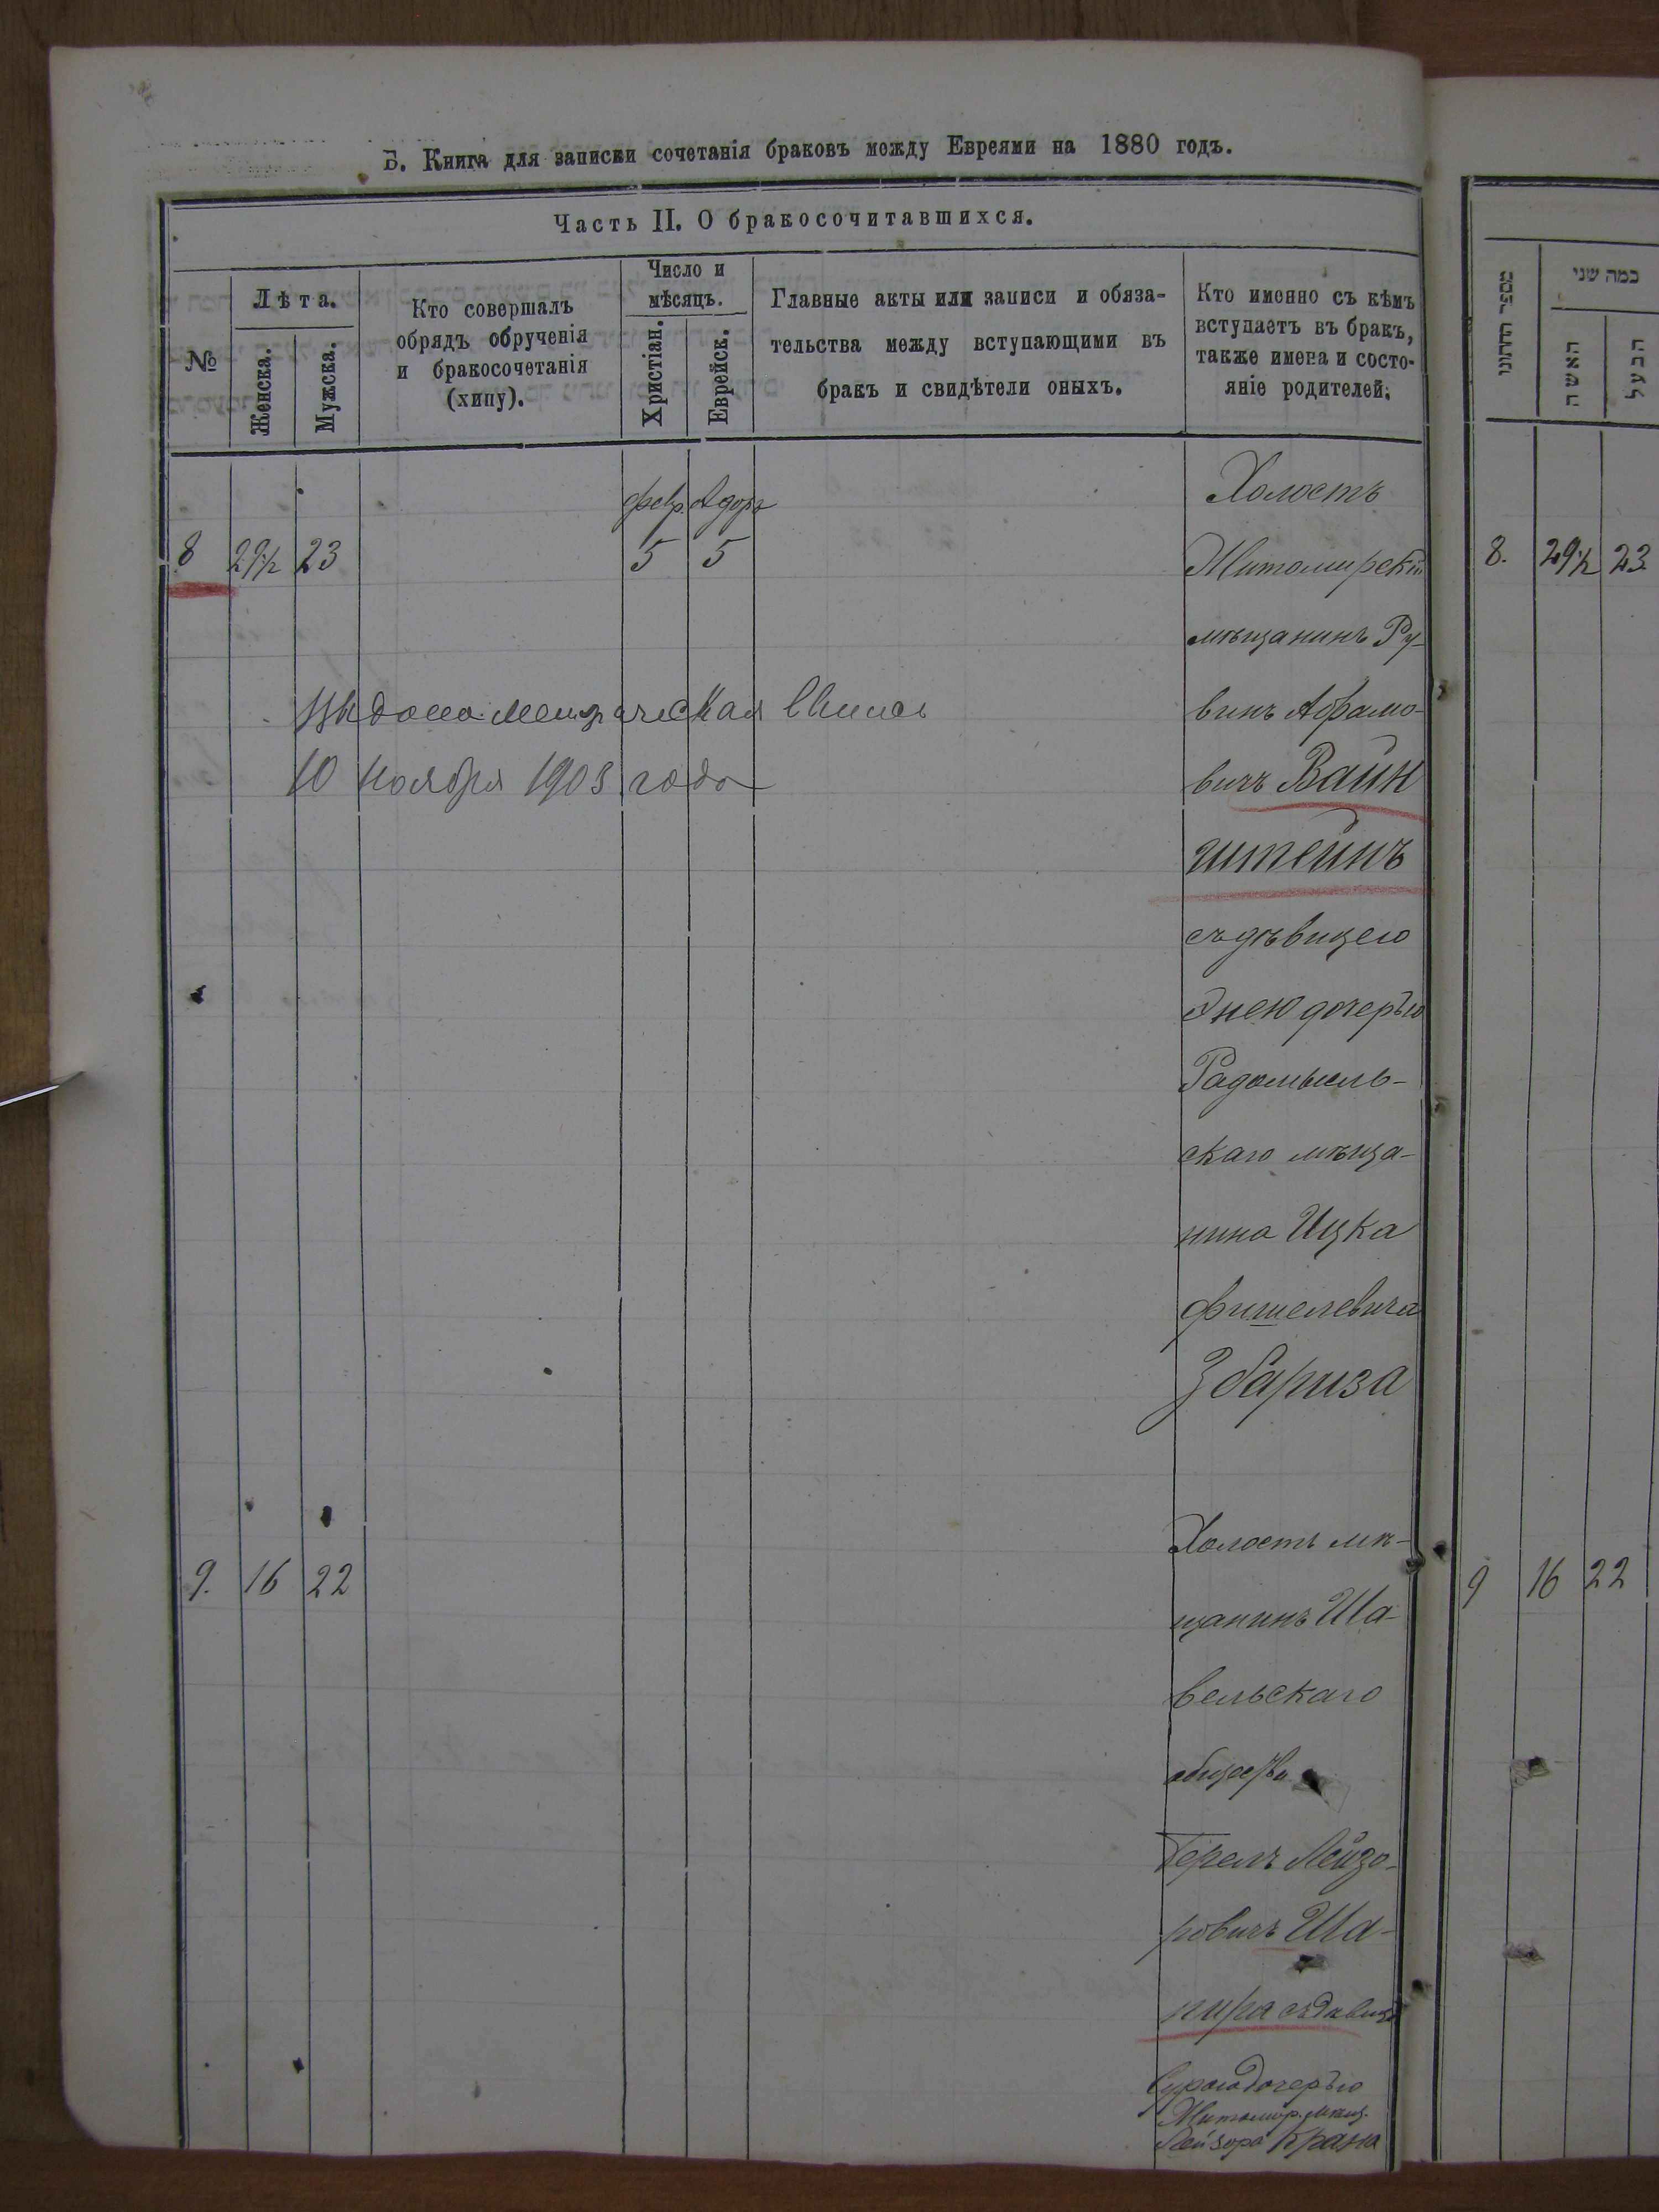 Б. Книга для записки сочетанія браковъ между Евреями на 1880 годъ.
Часть II. О бракосочитавшихся.
№
Лѣта.
Женска.
Мужска.
Кто совершалъ
обрядъ обрученія
и бракосочетанія
(хипу).
Число и
мѣсяцъ.
Христіан.
Еврейск.
Главные акты или записи и обяза-
тельства между вступающими въ
бракъ и свидѣтели оныхъ.
Кто именно съ кѣмъ
вступаетъ въ бракъ,
также имена и состо-
яніе родителей.
февр. Адоръ
8 29½ 23 5 5
Холостъ
Житомирскій
мѣщанинъ Ру-
винъ Абрамо-
вичъ Вайн
штейнъ
съ дѣвицею
Энею дочерью
Радомысль-
скаго мѣща-
нина Ицка
Фишелевича
Збариза
Выдана метрическая
10 ноября 1903 года
9. 16 22
Холостъ мѣ-
щанинъ Ша-
вельскаго
общества
Берелъ Лейзо-
ровичъ Ша-
пира съ дѣвицею
Сурою дочерью
Житомир. мѣщ.
Лейзора
מספר החתונו
כמה שני
האשה
הבעל
8. 29½ 23.
9 16 22